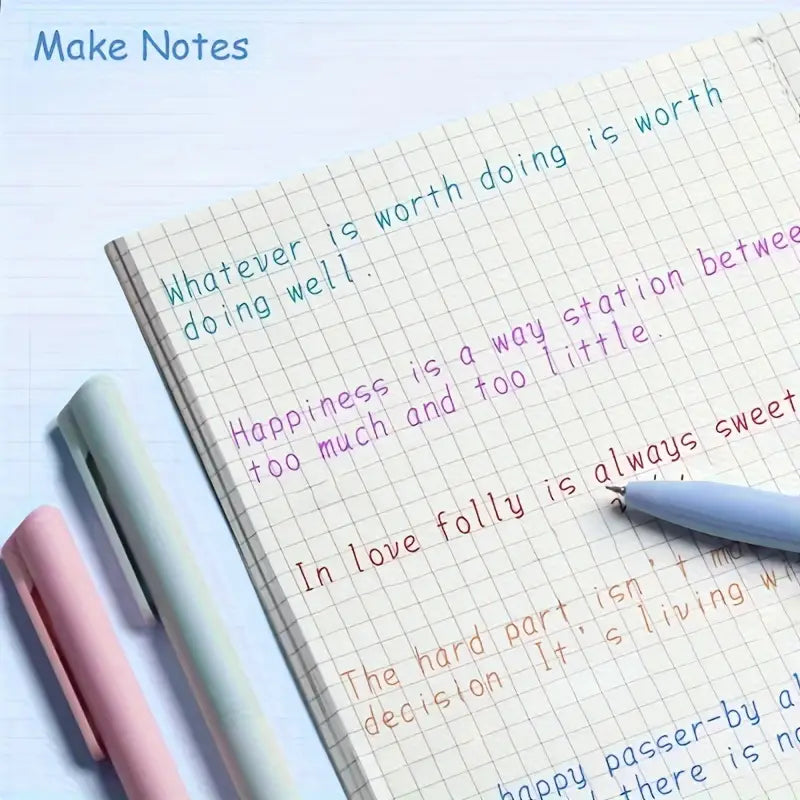 Make Notes
Whatever is worth doing is worth
doing well.
Happiness is a way station
too much and too little.
In love folly is always sweet
The hard part isn't
decision It's living
happy passer-by
there is